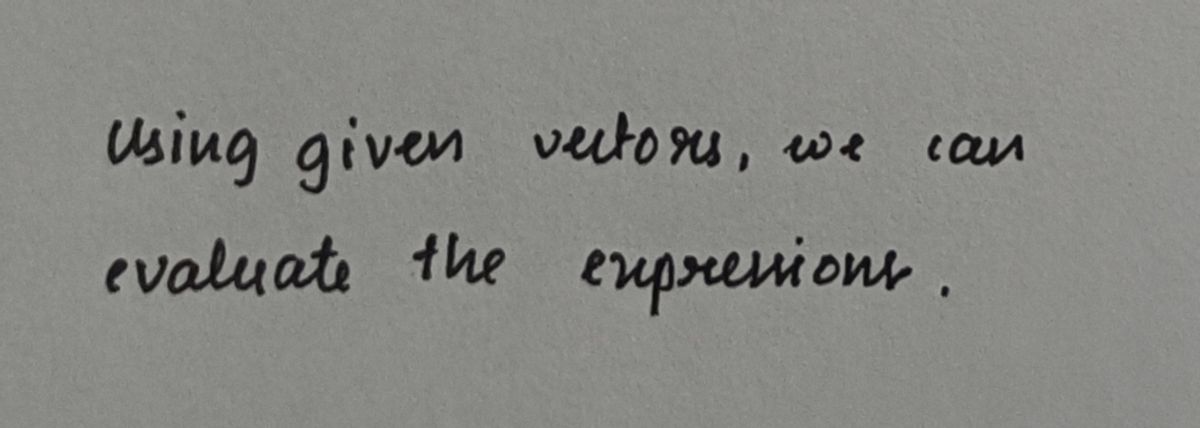 Using given vectors, we can
evaluate the expressions.